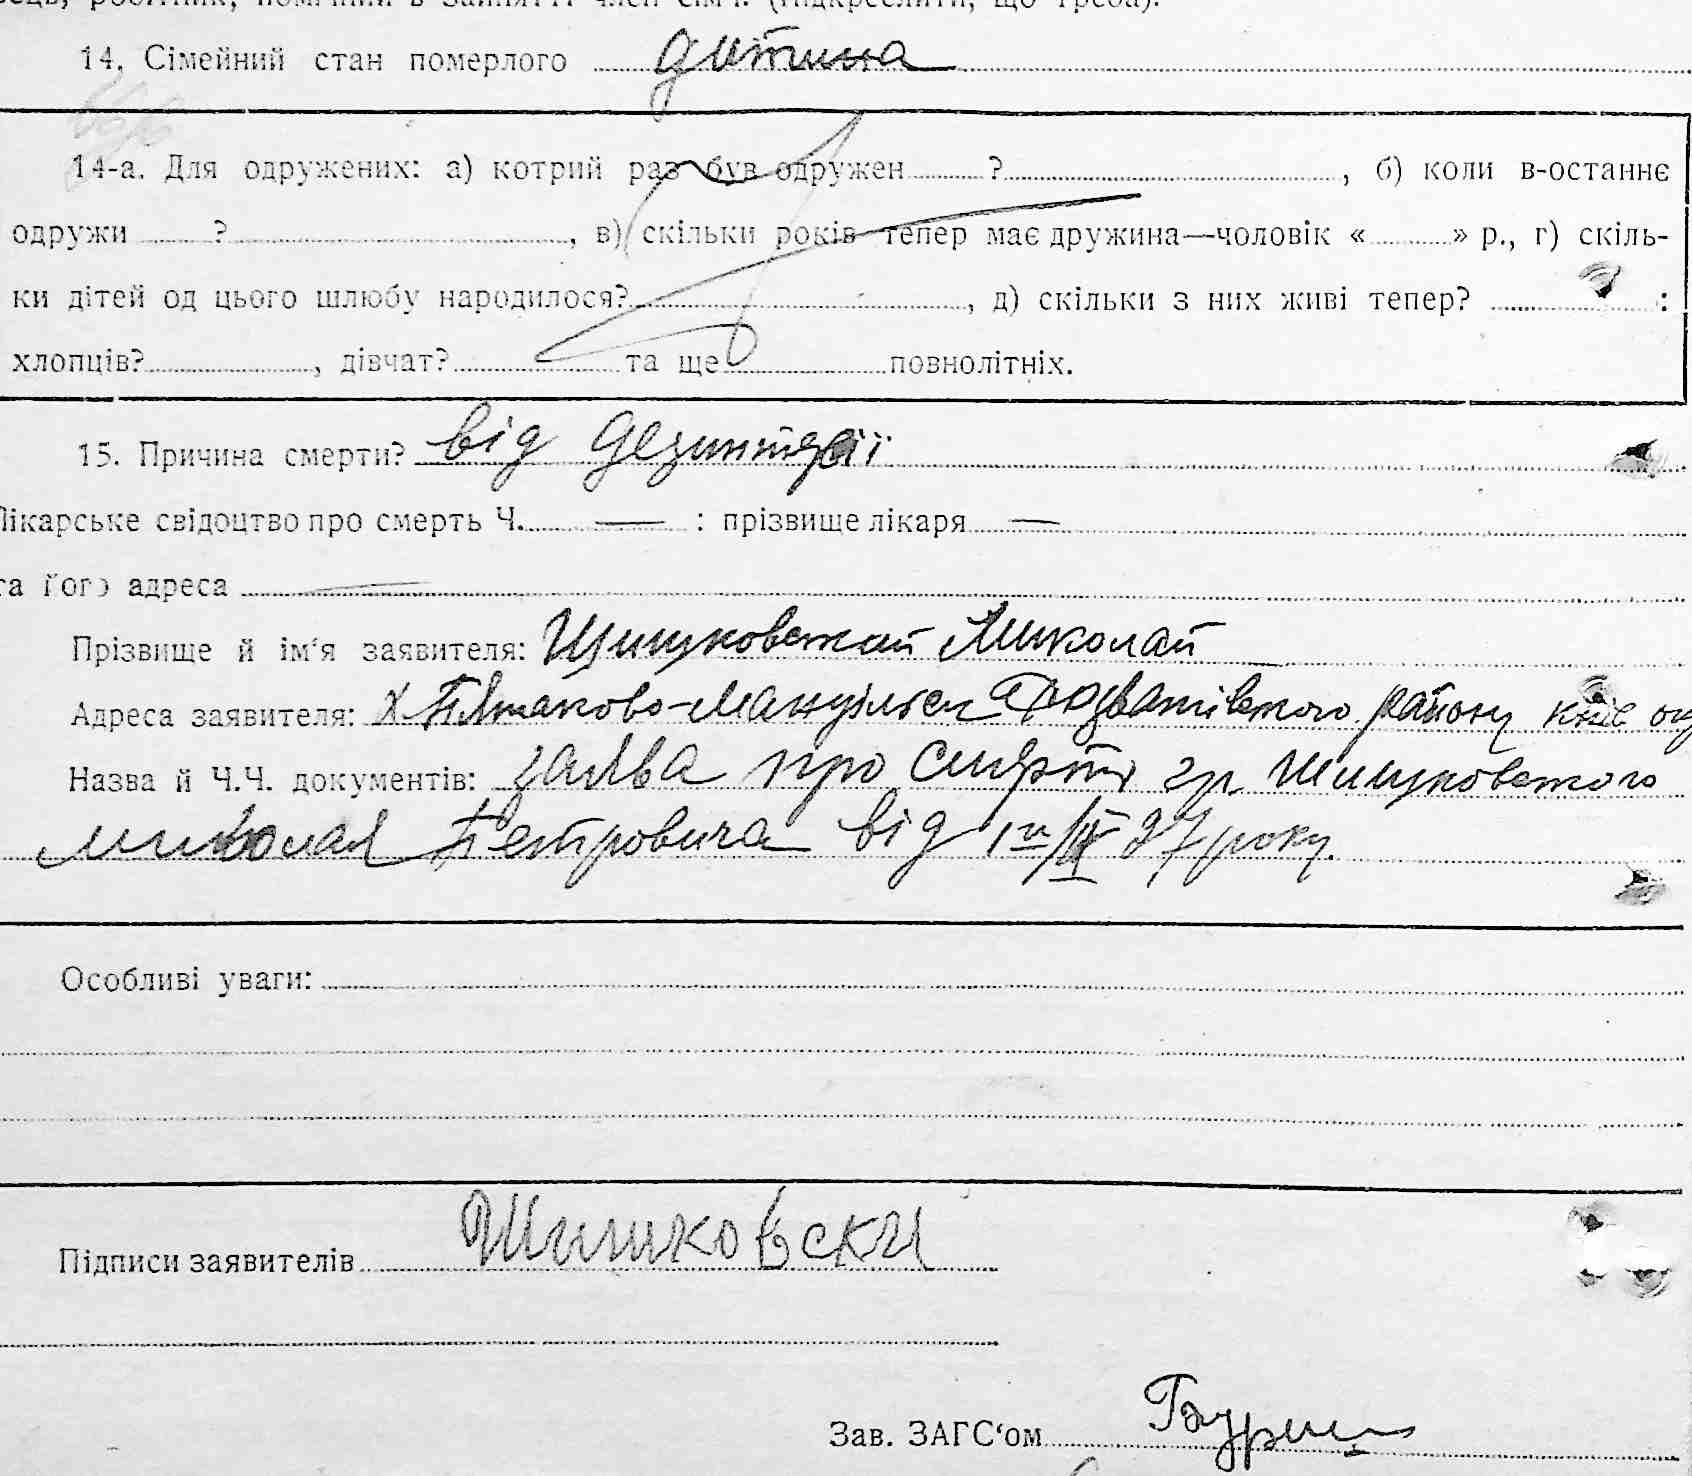 робітник, помічний в занятті член сім'ї. (Підкреслити, що треба).
14. Сімейний стан померлого дитина
14-а. Для одружених: а) котрий раз був одружен ? , б) коли в-останнє
одружи ? , в) скільки років тепер має дружина—чоловік « » р., г) скіль-
ки дітей од цього шлюбу народилося? , д) скільки з них живі тепер? :
хлопців? , дівчат? та ще повнолітніх.
15. Причина смерти? від дезинтерії
Лікарське свідоцтво про смерть Ч. — : прізвище лікаря —
та його адреса —
Прізвище й ім'я заявителя: Шишковський Миколай
Адреса заявителя: х. Пятаково- району Київ
Назва й Ч.Ч. документів: заява про смерть гр. Шишковського
Миколая Петровича від 27 року.
Особливі уваги:
Підписи заявителів Шишковски
Зав. ЗАГС'ом